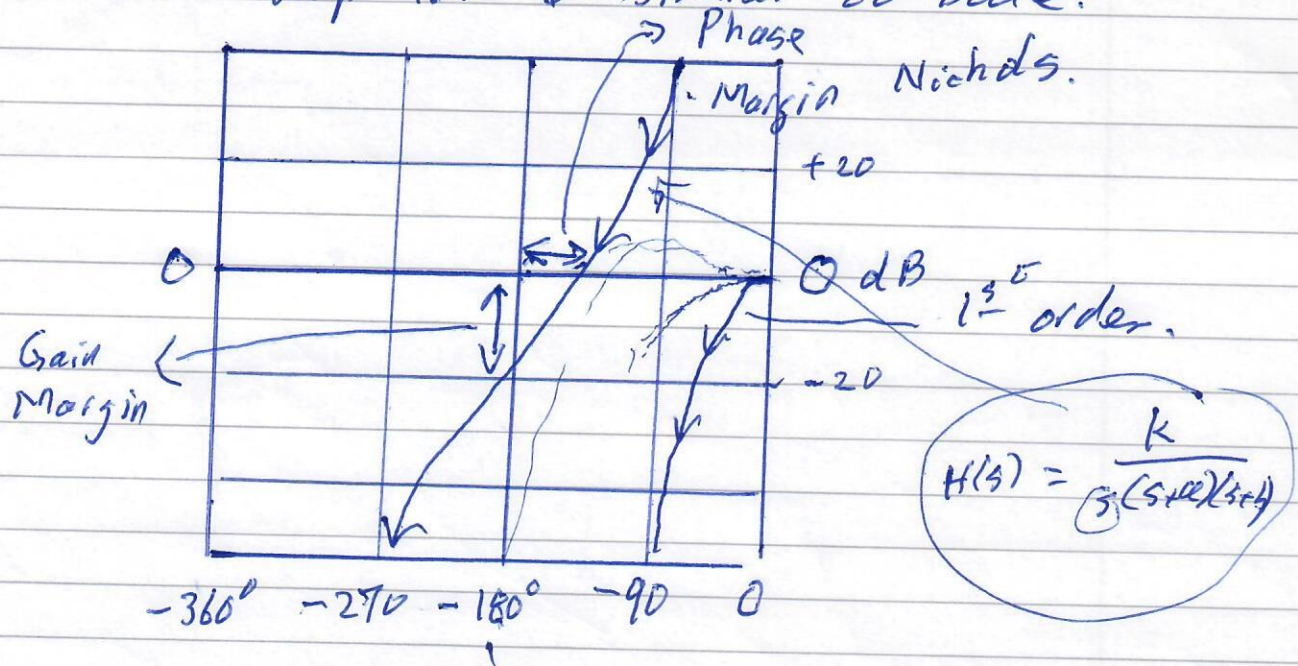 Phase
Margin
Nichols.
+20
0
0 dB
1st order.
Gain
Margin
-20
H(s) = K / s(s+a)(s+b)
-360° -270 -180° -90 0